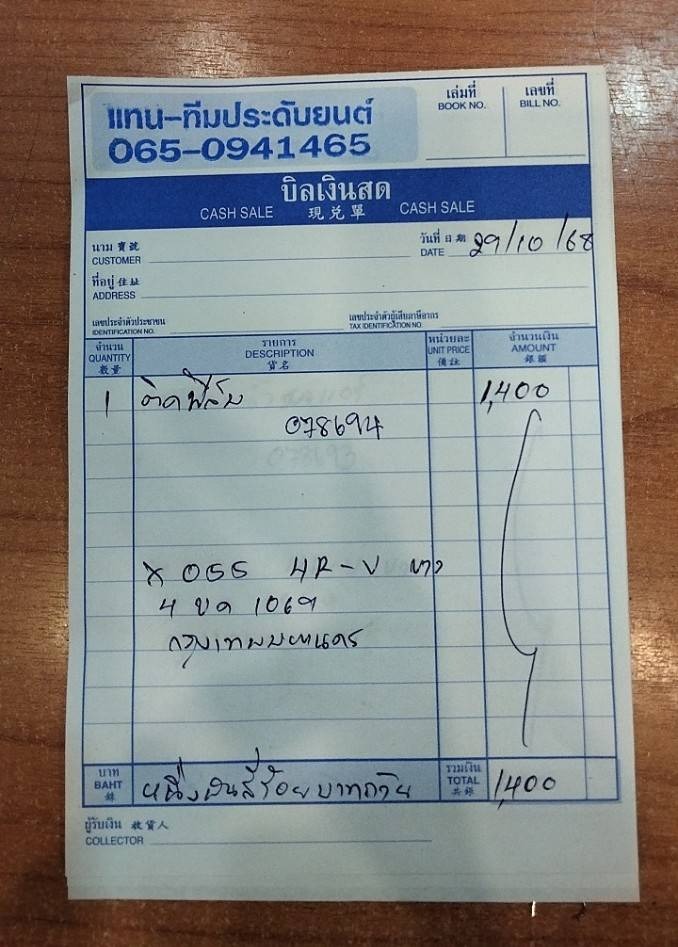 แทน-ทีมประดับยนต์
065-0941465
เล่มที่
BOOK NO.
เลขที่
BILL NO.
บิลเงินสด
CASH SALE 現兌單 CASH SALE
นาม 寶號
CUSTOMER
วันที่ 日期
DATE 29/10/68
ที่อยู่ 住址
ADDRESS
เลขประจำตัวประชาชน
IDENTIFICATION NO.
เลขประจำตัวผู้เสียภาษีอากร
TAX IDENTIFICATION NO.
จำนวน
QUANTITY
數量
รายการ
DESCRIPTION
貨名
หน่วยละ
UNIT PRICE
備註
จำนวนเงิน
AMOUNT
銀額
1 ติดฟิล์ม 1,400
078694
4R-V
4 ขด 1069
กรุงเทพมหานคร
บาท
BAHT
銖
หนึ่งพันสี่ร้อยบาทถ้วน
รวมเงิน
TOTAL
共銖
1,400
ผู้รับเงิน 收貨人
COLLECTOR